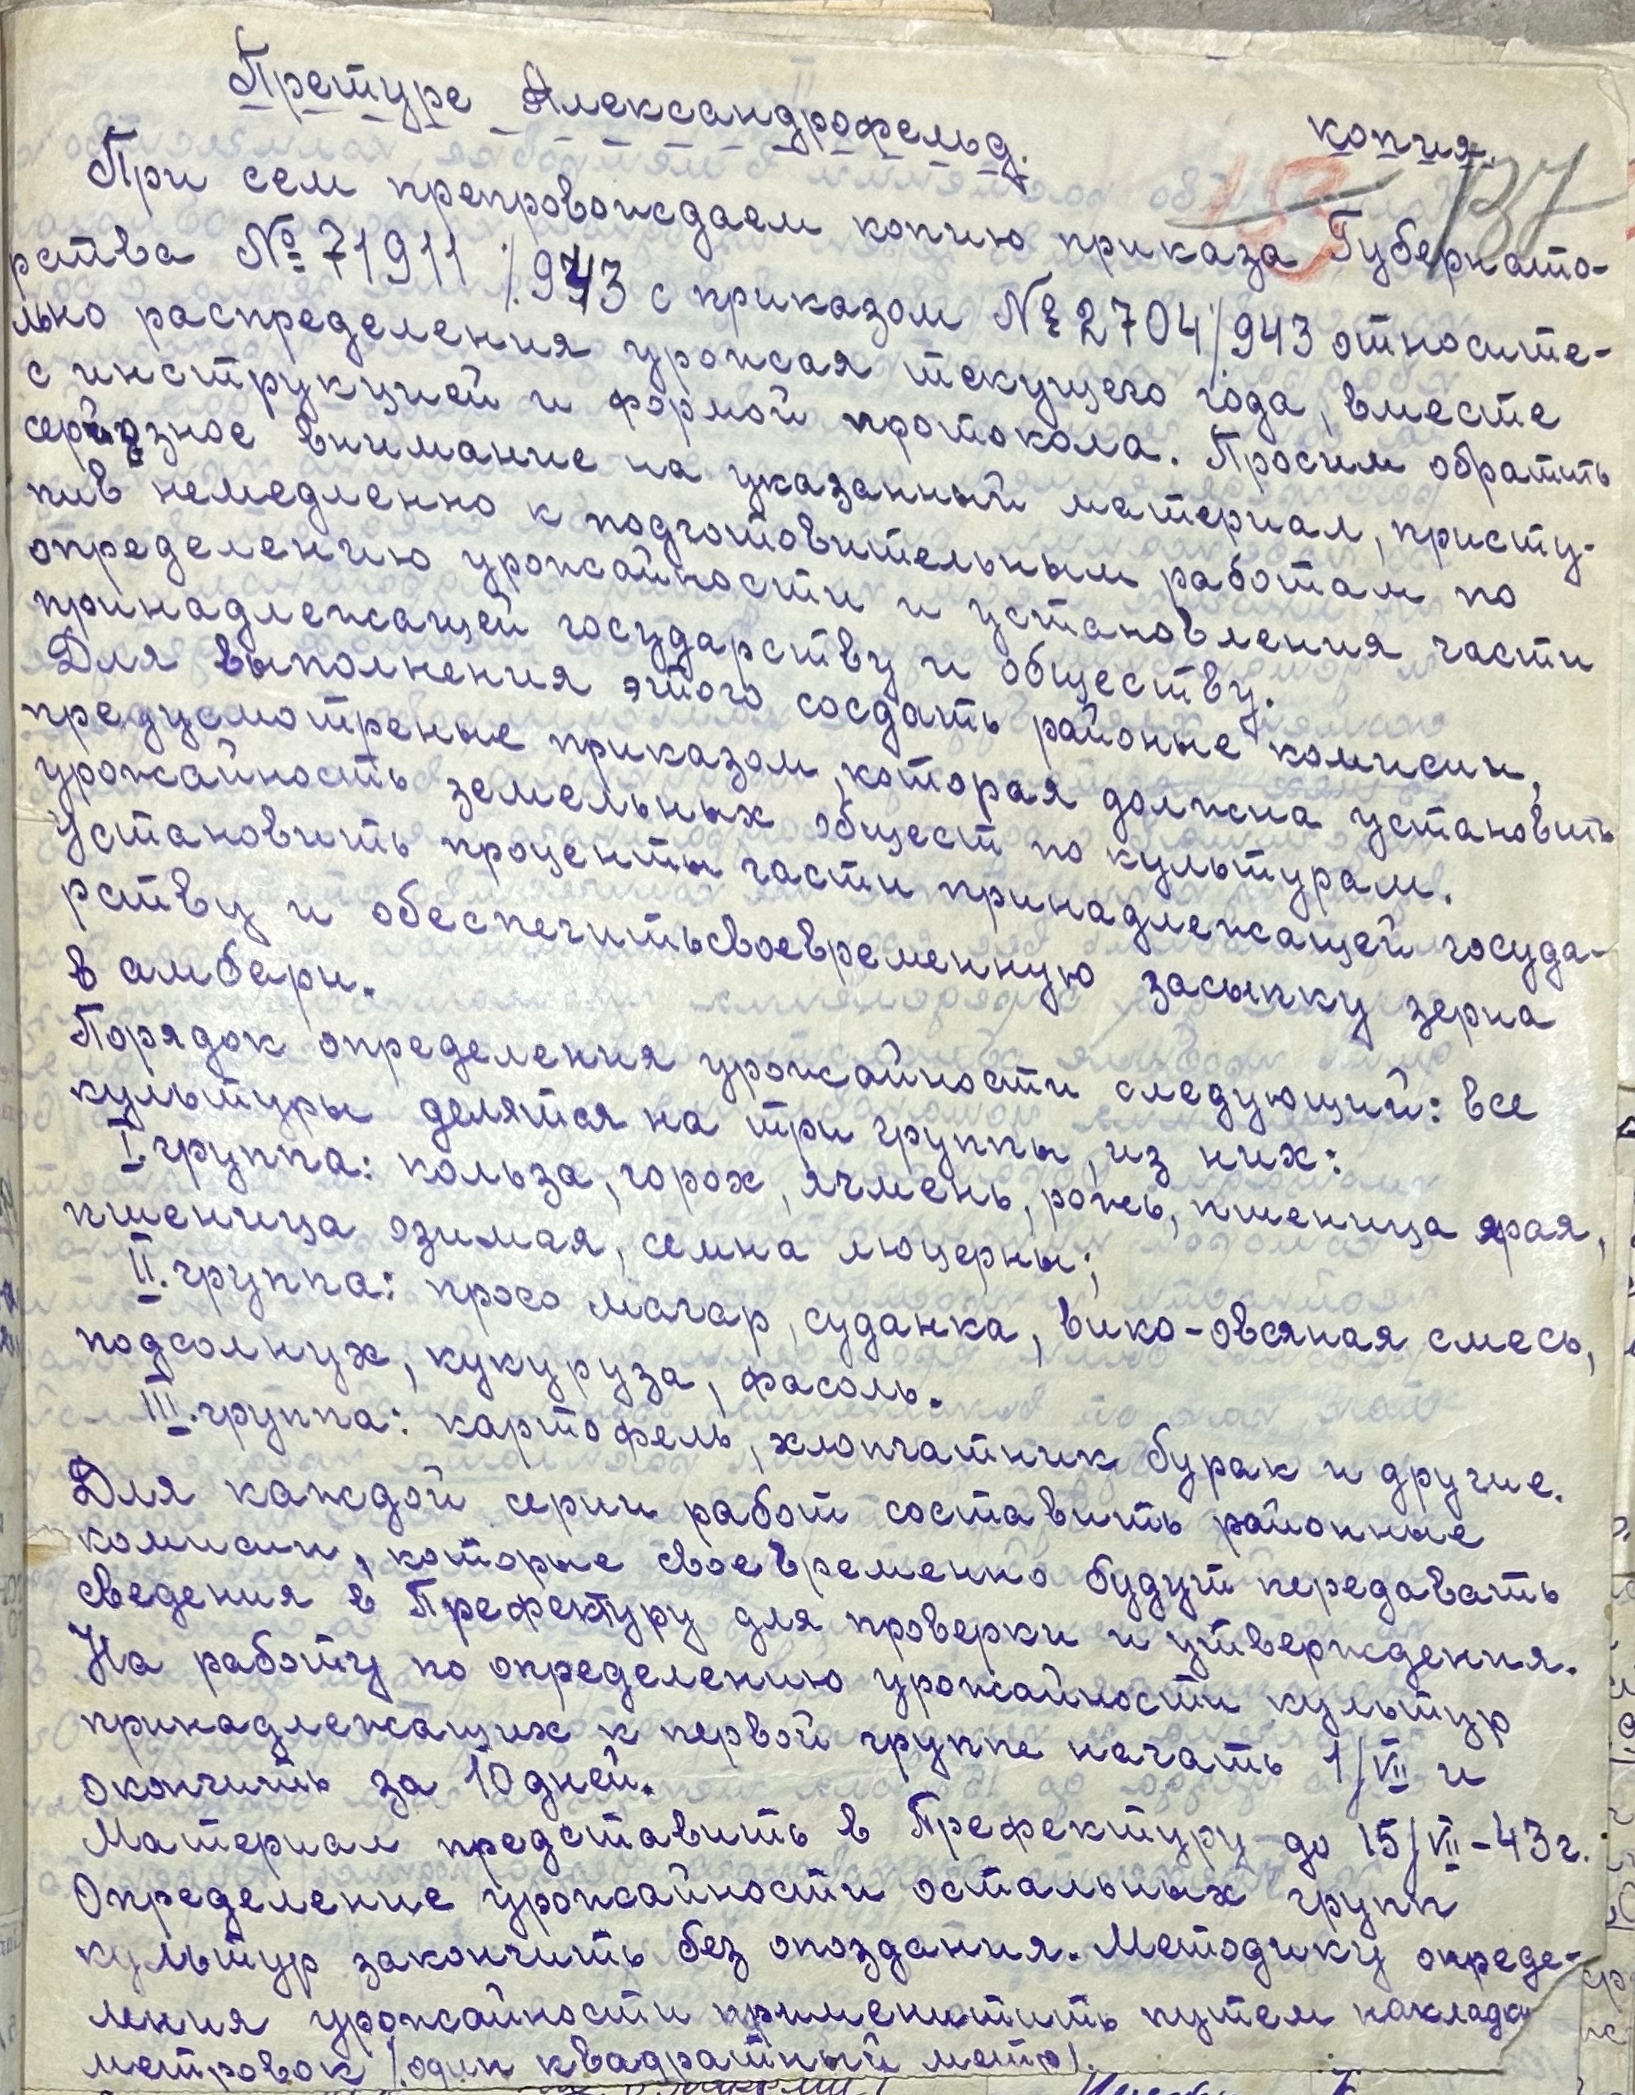 Претуре Александрофельд.
копия.
18 137
При сем препровождаем копию приказа Губернато-
рства № 71911 /.943 с приказом № 2704/943 относите-
льно распределения урожая текущего года, вместе
с инструкцией и формой протокола. Просим обратить
серйозное внимание на указанный материал, присту-
пив немедленно к подготовительным работам по
определению урожайности и установления части
принадлежащей государству и обществу.
Для выполнения этого создать районые комисии,
предусмотреные приказом, которая должна установить
урожайность земельных общест по культурам.
Установить проценты части принадлежащей госуда-
рству и обеспечить своевременную засыпку зерна
в амбары.
Порядок определения урожайности следующий: все
культуры делятся на три группы, из них:
I. группа: кольза, горох, ячмень, рожь, пшеница ярая,
пшеница озимая, семна люцерны;
II. группа: просо магар, суданка, вико-овсяная смесь,
подсолнух, кукуруза, фасоль.
III. группа: картофель, хлопчатник бурак и другие.
Для каждой серии работ составить районные
комисии, которые своевременно будут передавать
сведения в Префектуру для проверки и утверждения.
На работу по определению урожайности культур
принадлежащих к первой группе начать 1/VII и
окончить за 10 дней.
Материал представить в Префектуру до 15/VII-43г.
Определение урожайности остальных групп
культур закончить без опоздания. Методику опреде-
ления урожайности применитить путем накладки
метровок /один квадратный метр/.